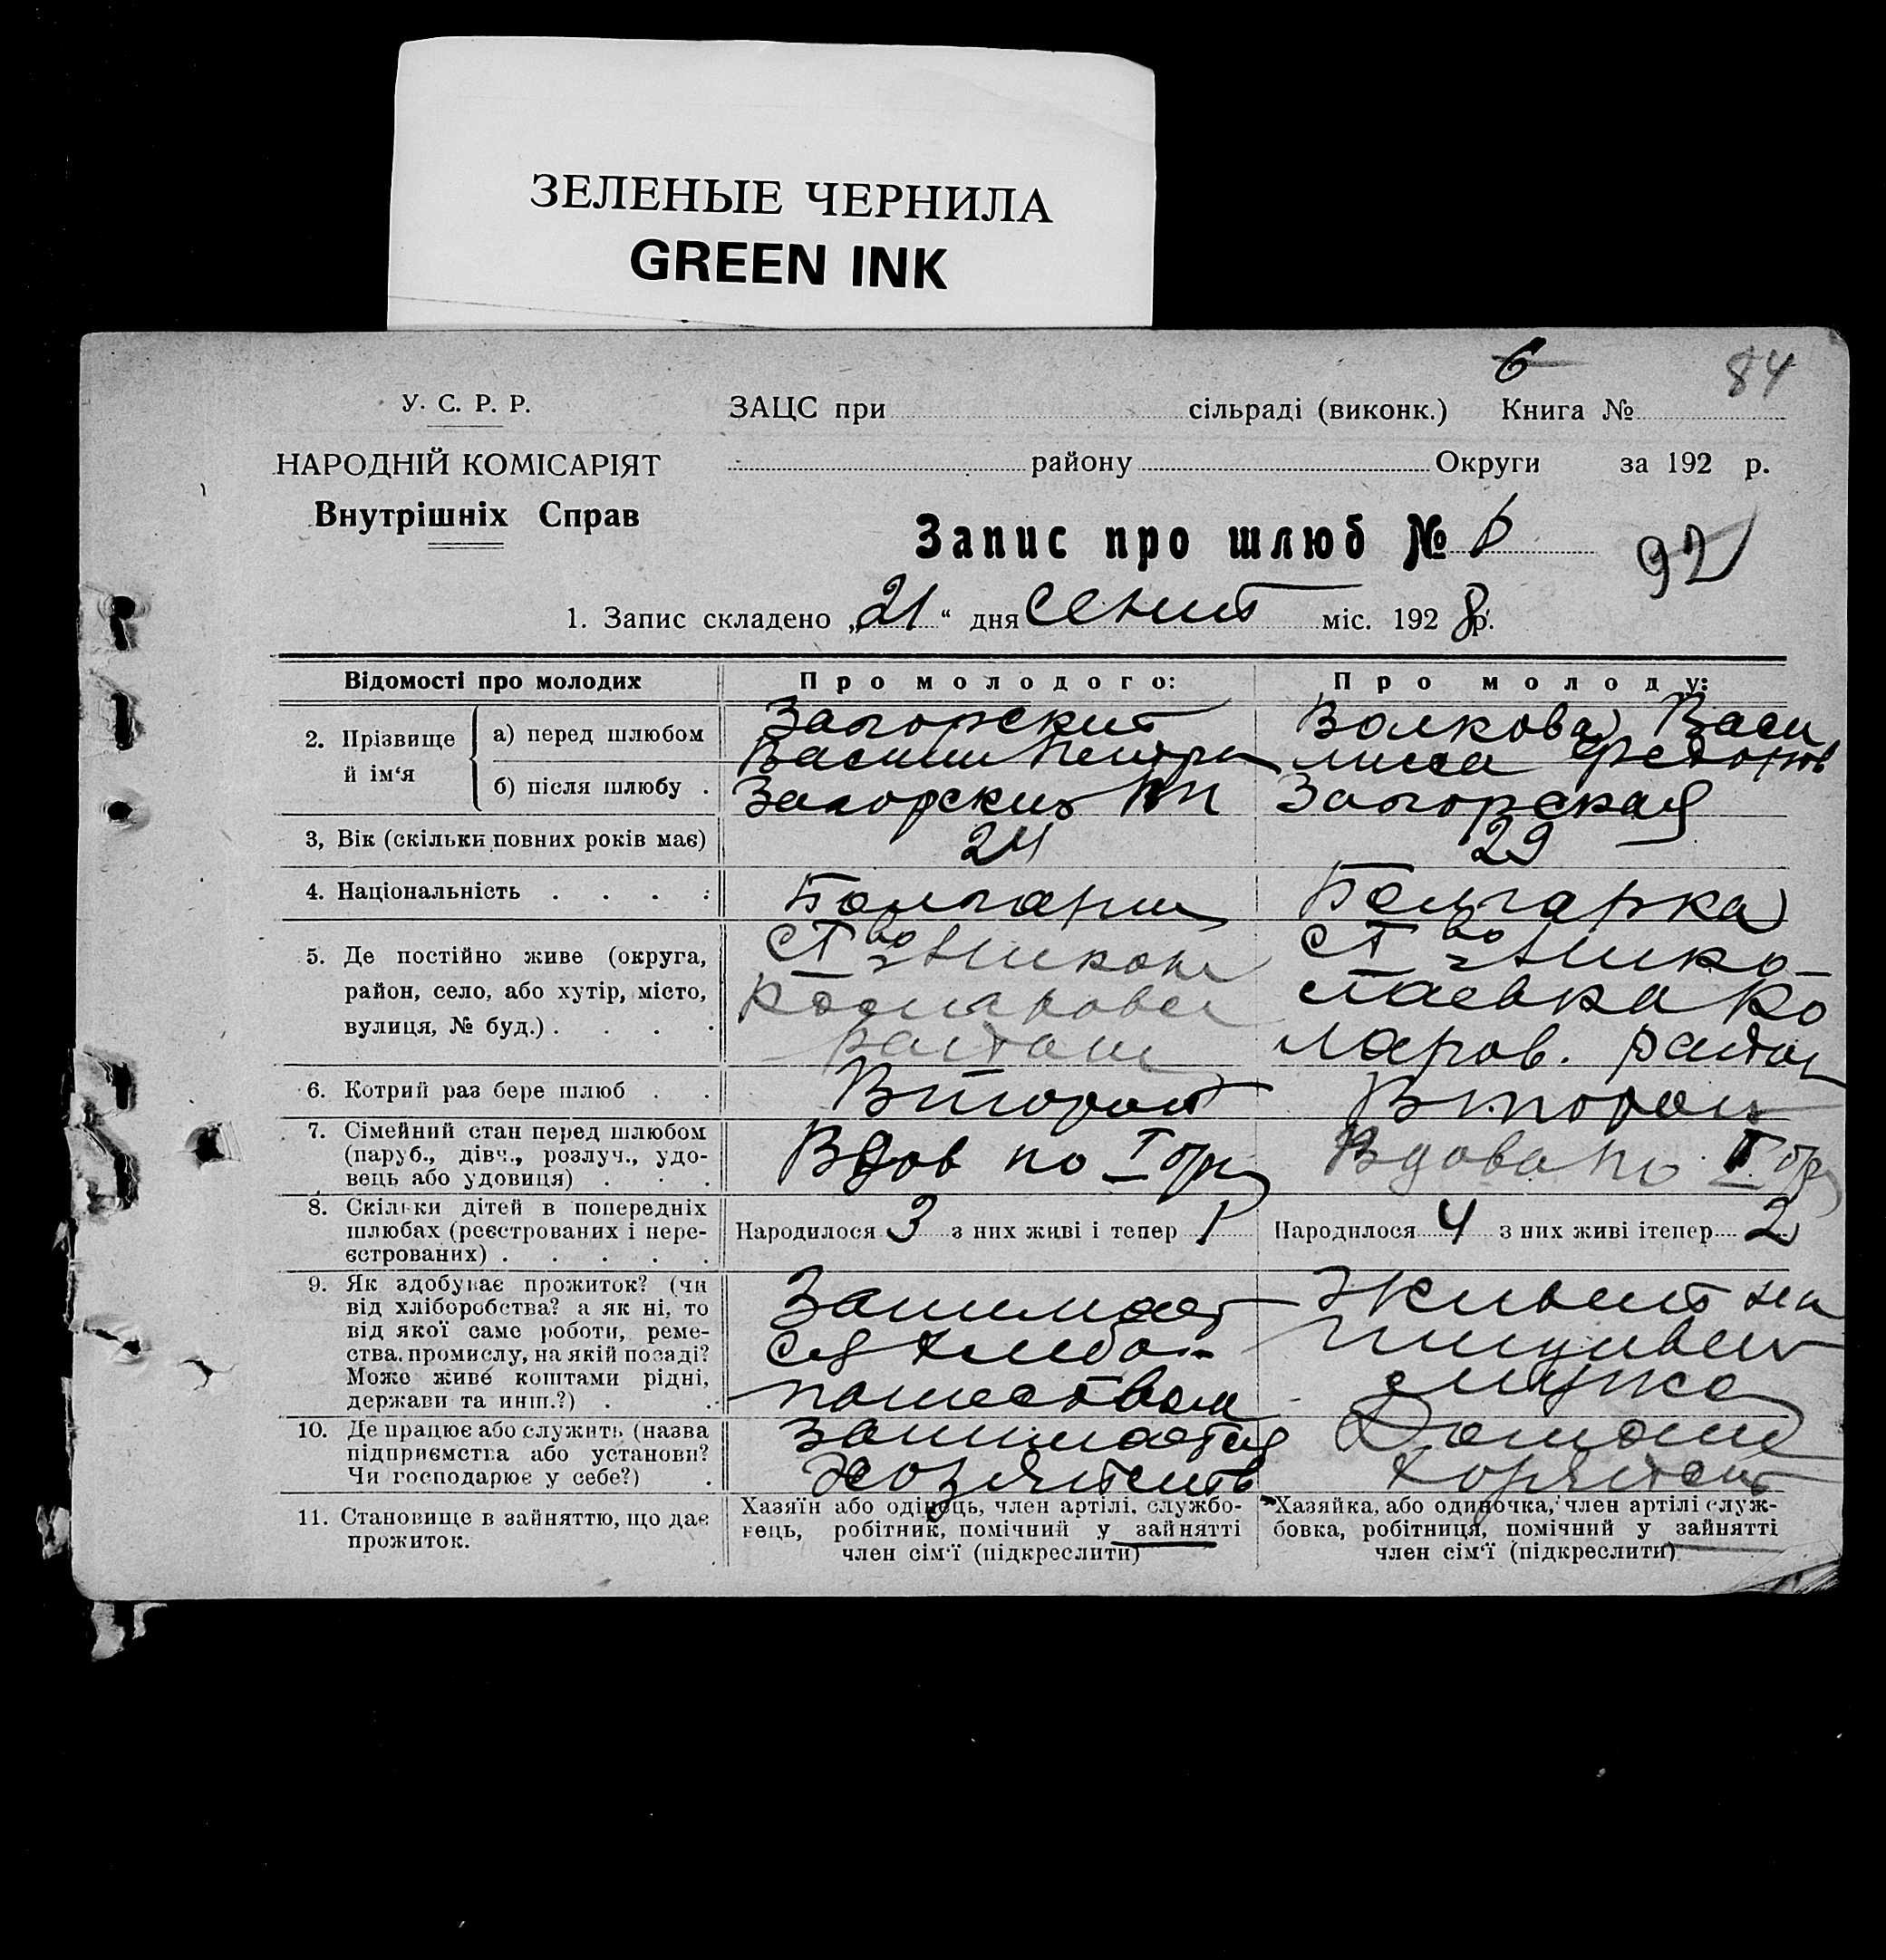 ЗЕЛЕНЫЕ ЧЕРНИЛА
GREEN INK
6
84
У. С. Р. Р.
ЗАЦС при сільраді (виконк.) Книга №
НАРОДНІЙ КОМІСАРІЯТ
району Округи за 192 р.
Внутрішніх Справ
Запис про шлюб № 6
92
1. Запис складено „21“ дня Сент міс. 1928 р.
Відомості про молодих
Про молодого:
Про молоду:
2. Прізвище й ім‘я
а) перед шлюбом
Загорский
Василий Петров
Волкова Васи
лиса Федоров
б) після шлюбу .
Загорский
Загорская
3, Вік (скільки повних років має)
24
29
4. Національність . . . .
Болгарин
Болгарка
5. Де постійно живе (округа,
район, село, або хутір, місто,
вулиця, № буд.) . . . .
район
Нико-
лаевка Ко
ларов. район
6. Котрий раз бере шлюб . .
Второй
Второй
7. Сімейний стан перед шлюбом
(паруб., дівч., розлуч., удо-
вець або удовиця) . . .
Вдов по I бр
Вдова по I бр
8. Скільки дітей в попередніх
шлюбах (реєстрованих і нере-
єстрованих) . . . . .
Народилося 3 з них живі і тепер 1
Народилося 4 з них живі ітепер 2
9. Як здобуває прожиток? (чи
від хліборобства? а як ні, то
від якої саме роботи, реме-
ства, промислу, на якій посаді?
Може живе коштами рідні,
держави та инш.?) . .
Занимает
ся хлебо-
пашеством
Живет на
иждивен
мужа
10. Де працює або служить (назва
підприємства або установи?
Чи господарює у себе?) .
Занимается
хозяйств
Домаш
хозяйст
11. Становище в зайняттю, що дає
прожиток.
Хазяїн або одінець, член артілі, службо-
вець, робітник, помічний у зайнятті
член сім‘ї (підкреслити)
Хазяйка, або одиночка, член артілі служ-
бовка, робітниця, помічний у зайнятті
член сім‘ї (підкреслити)